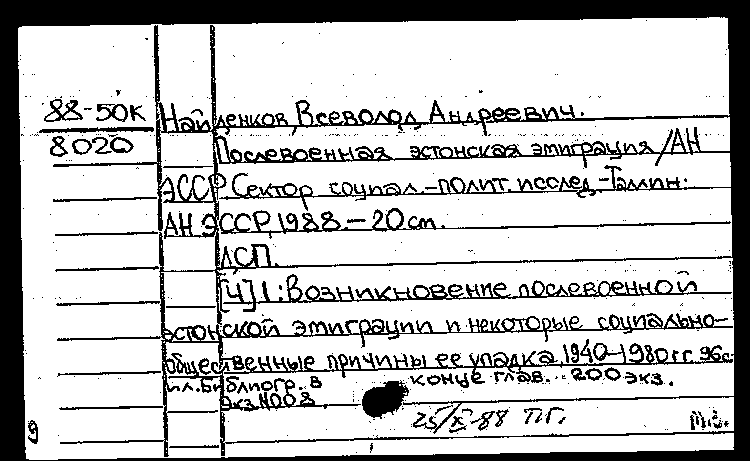 88-50К Найденков, Всеволод Андреевич.
8020 Послевоенная эстонская эмиграция / АН
ЭССР. Сектор социал.-полит. исслед. - Таллин:
АН ЭССР, 1988. - 20 см.
ДСП.
[Ч] 1: Возникновение послевоенной
эстонской эмиграции и некоторые социально-
общественные причины ее упадка, 1940-1980 гг. 96 с.
ил. Библиогр. в конце глав. 200 экз.
Экз. № 008.
25/X-88 П.Г.
9